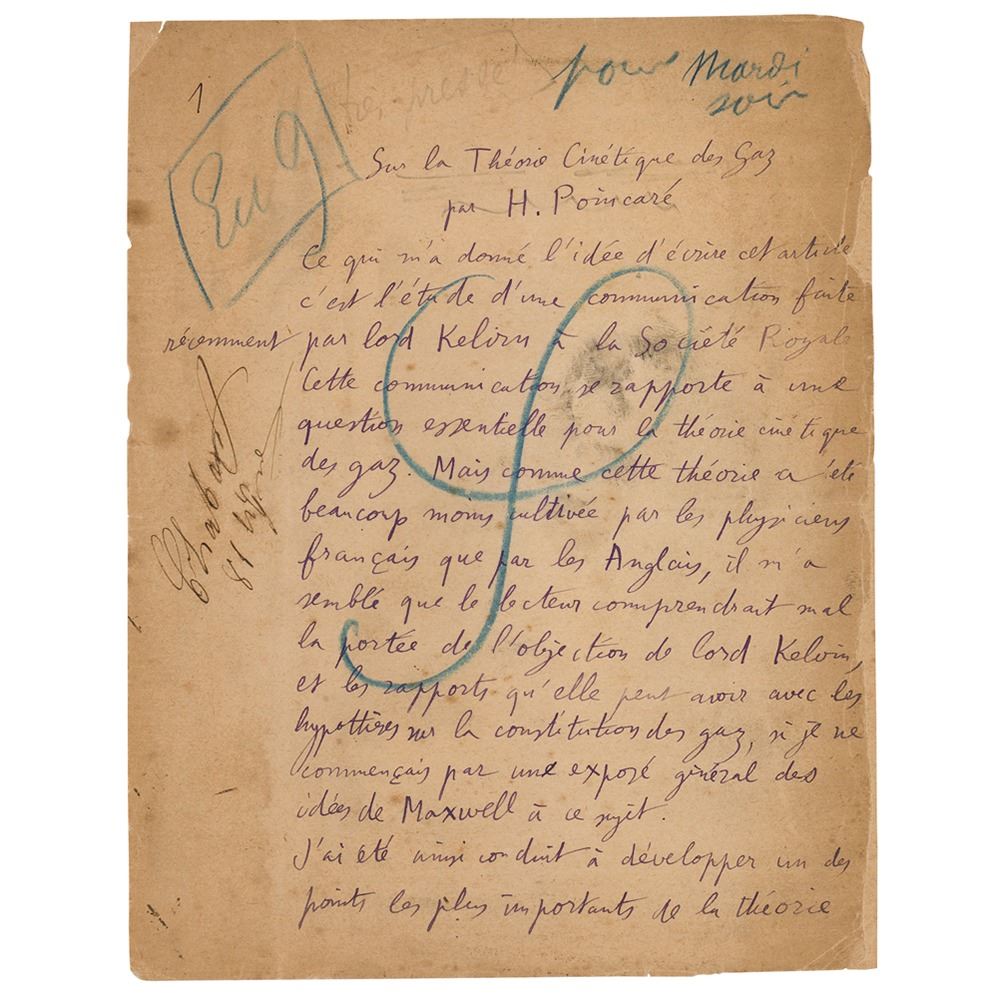 1
très pressé
pour Mardi
soir
Sur la Théorie Cinétique des Gaz
par H. Poincaré
Ce qui m'a donné l'idée d'écrire cet article
c'est l'étude d'une communication faite
récemment par lord Kelvin à la Société Royale
Cette communication se rapporte à une
question essentielle pour la théorie cinétique
des gaz. Mais comme cette théorie a été
beaucoup moins cultivée par les physiciens
français que par les Anglais, il m'a
semblé que le lecteur comprendrait mal
la portée de l'objection de lord Kelvin,
et les rapports qu'elle peut avoir avec les
hypothèses sur la constitution des gaz, si je ne
commençais par une exposé général des
idées de Maxwell à ce sujet.
J'ai été ainsi conduit à développer un des
points les plus importants de la théorie